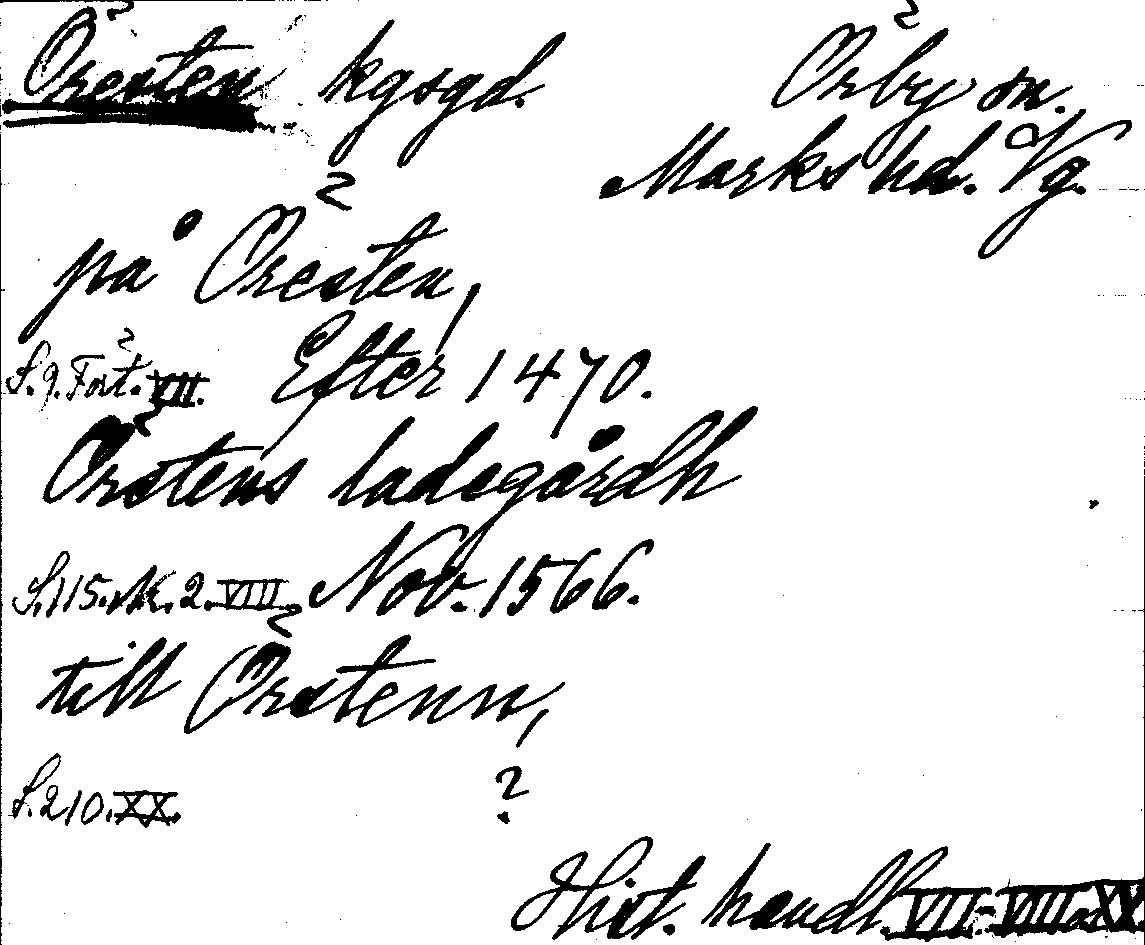 Öresten kgsgd. Örby sn.
Marks hd. Vg.
på Öresten,
S. 9. Fört. VII. Efter 1470.
Örstens ladegårdh
S. 115. Nr. 2. VIII. Nov. 1566.
till Örstenn,
S. 210. XX. ?
Hist. handl. VII. VIII o. XX.